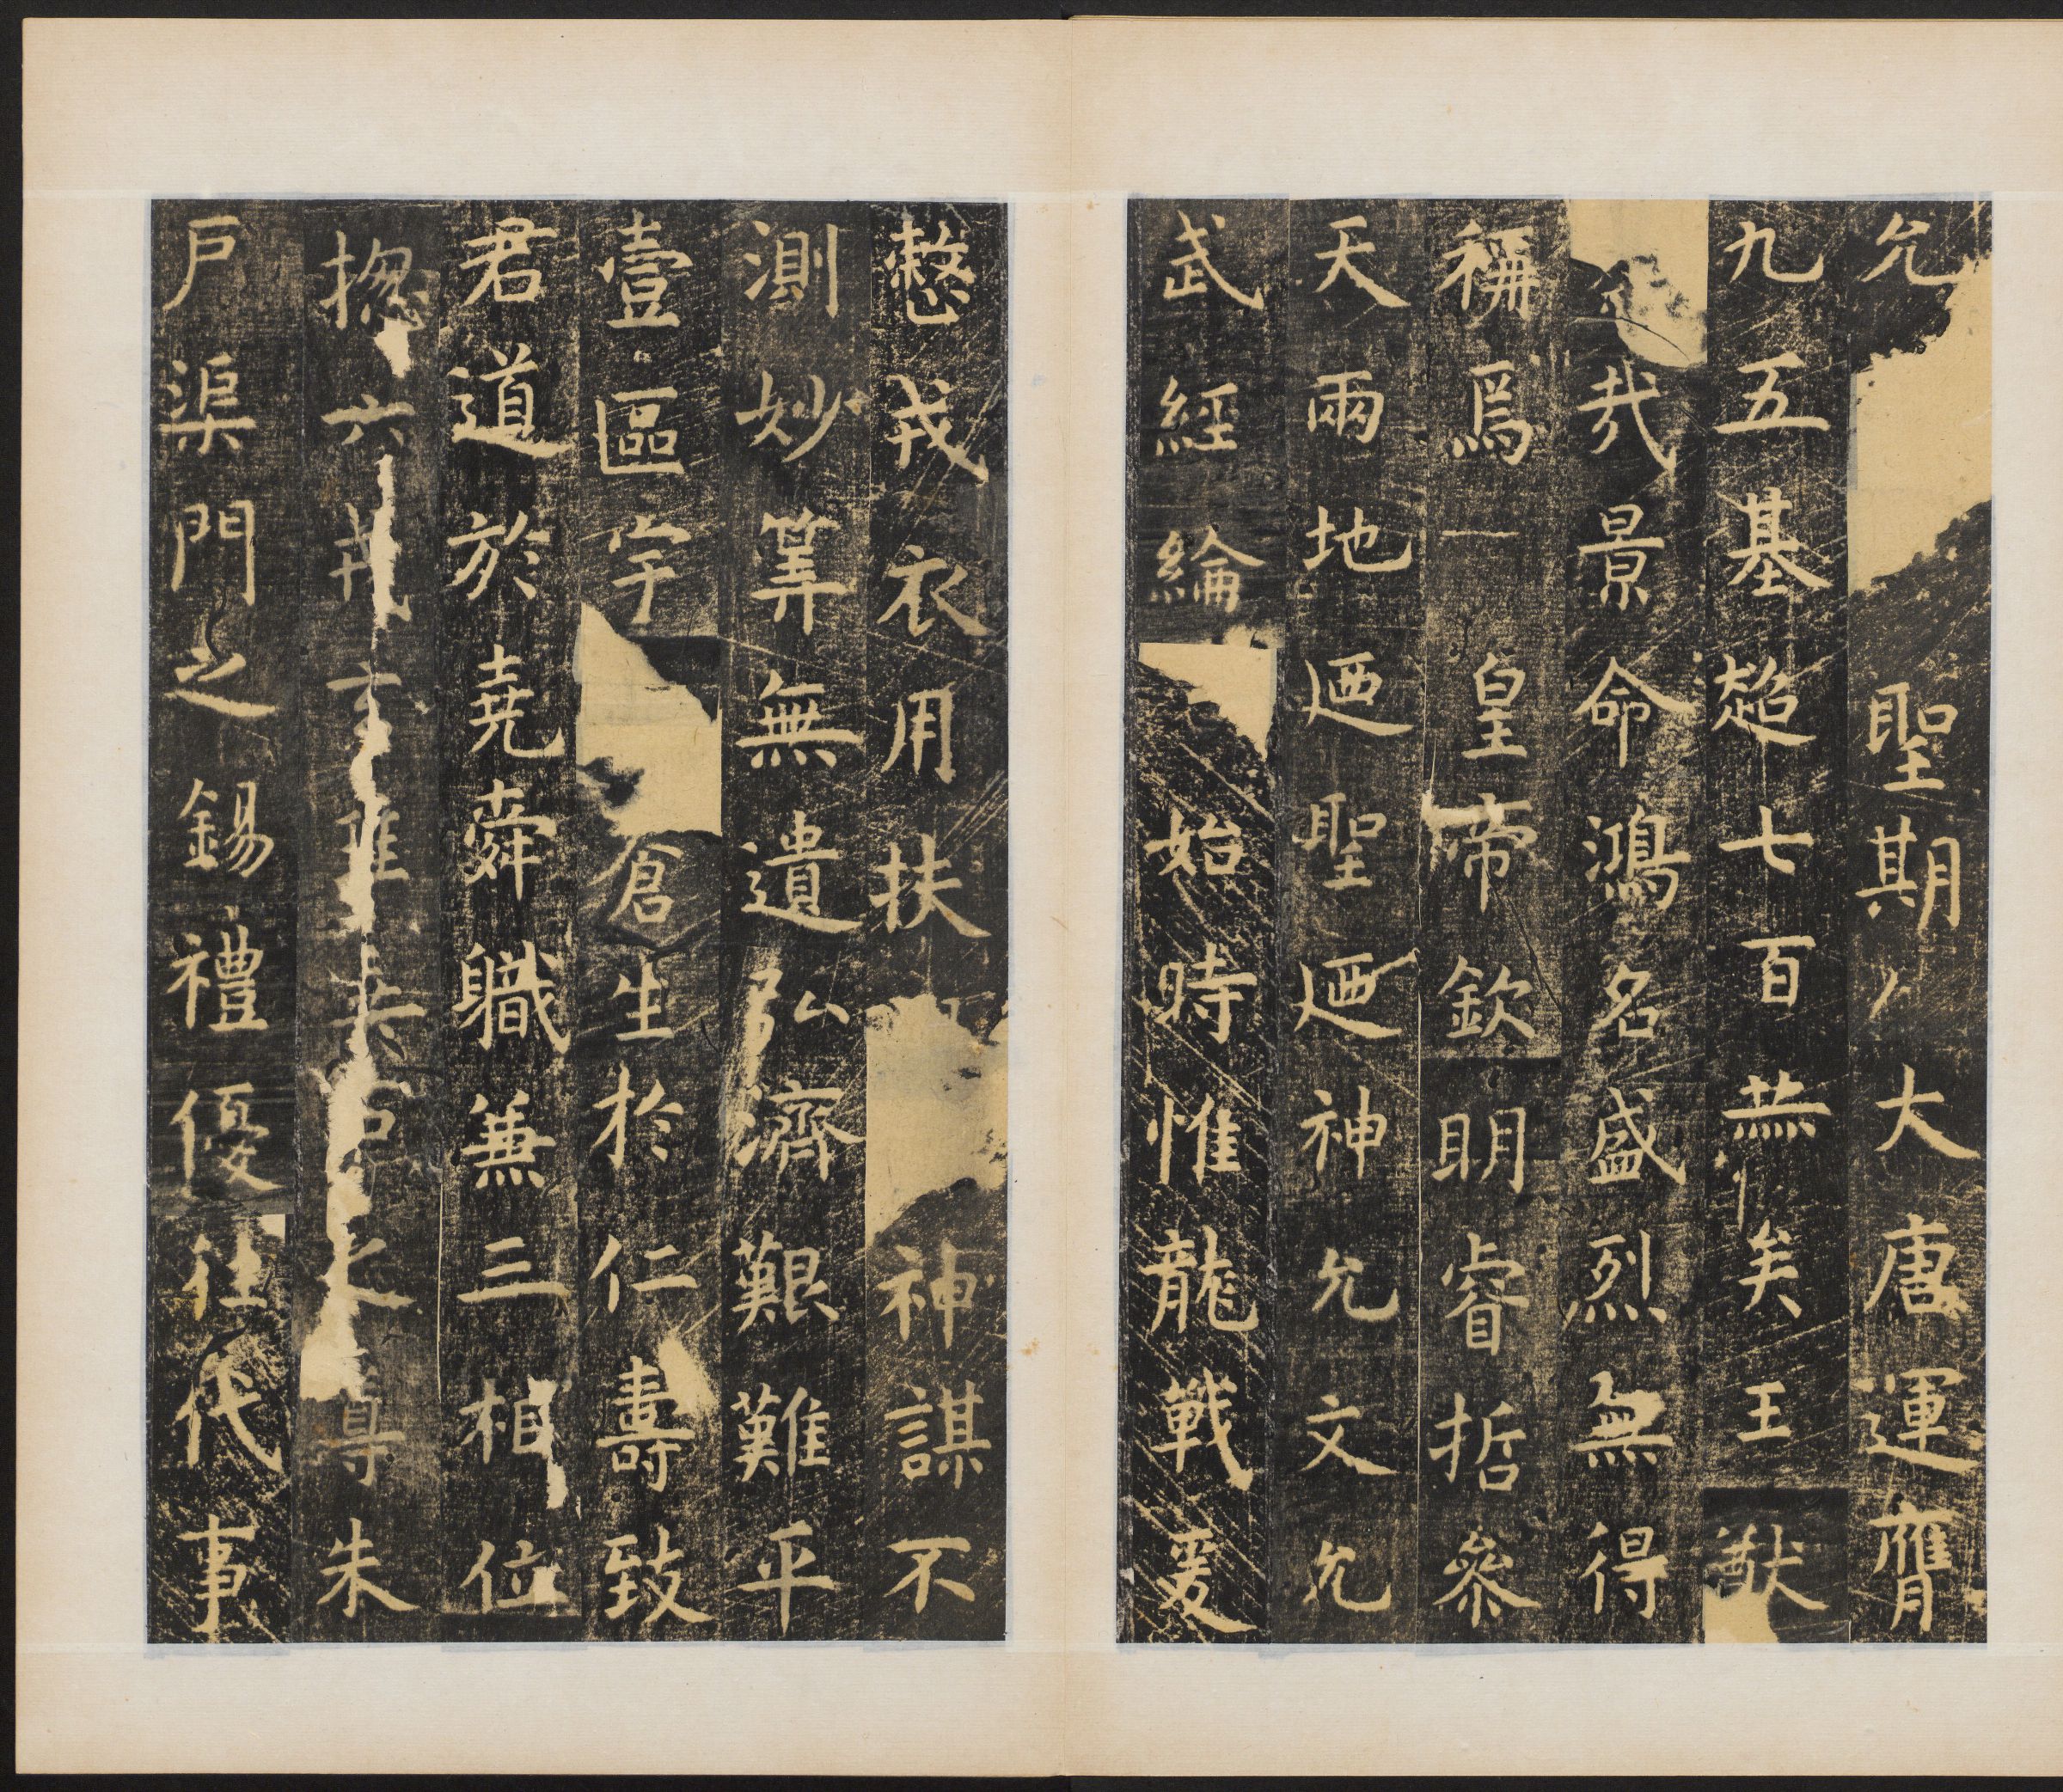 允聖期大唐運膺
九五基超七百無矣王猷
哉景命鴻名盛烈無得
稱焉一皇帝欽明睿哲參
天兩地迺聖迺神允文允
武經綸始時惟龍戰爰
整戎衣用扶神謀不
測妙筭無遺弘濟艱難平
壹區宇倉生於仁壽致
君道於堯舜職兼三相位
揔六戎玄珪乘石之尊朱
戶渠門之錫禮優往代事